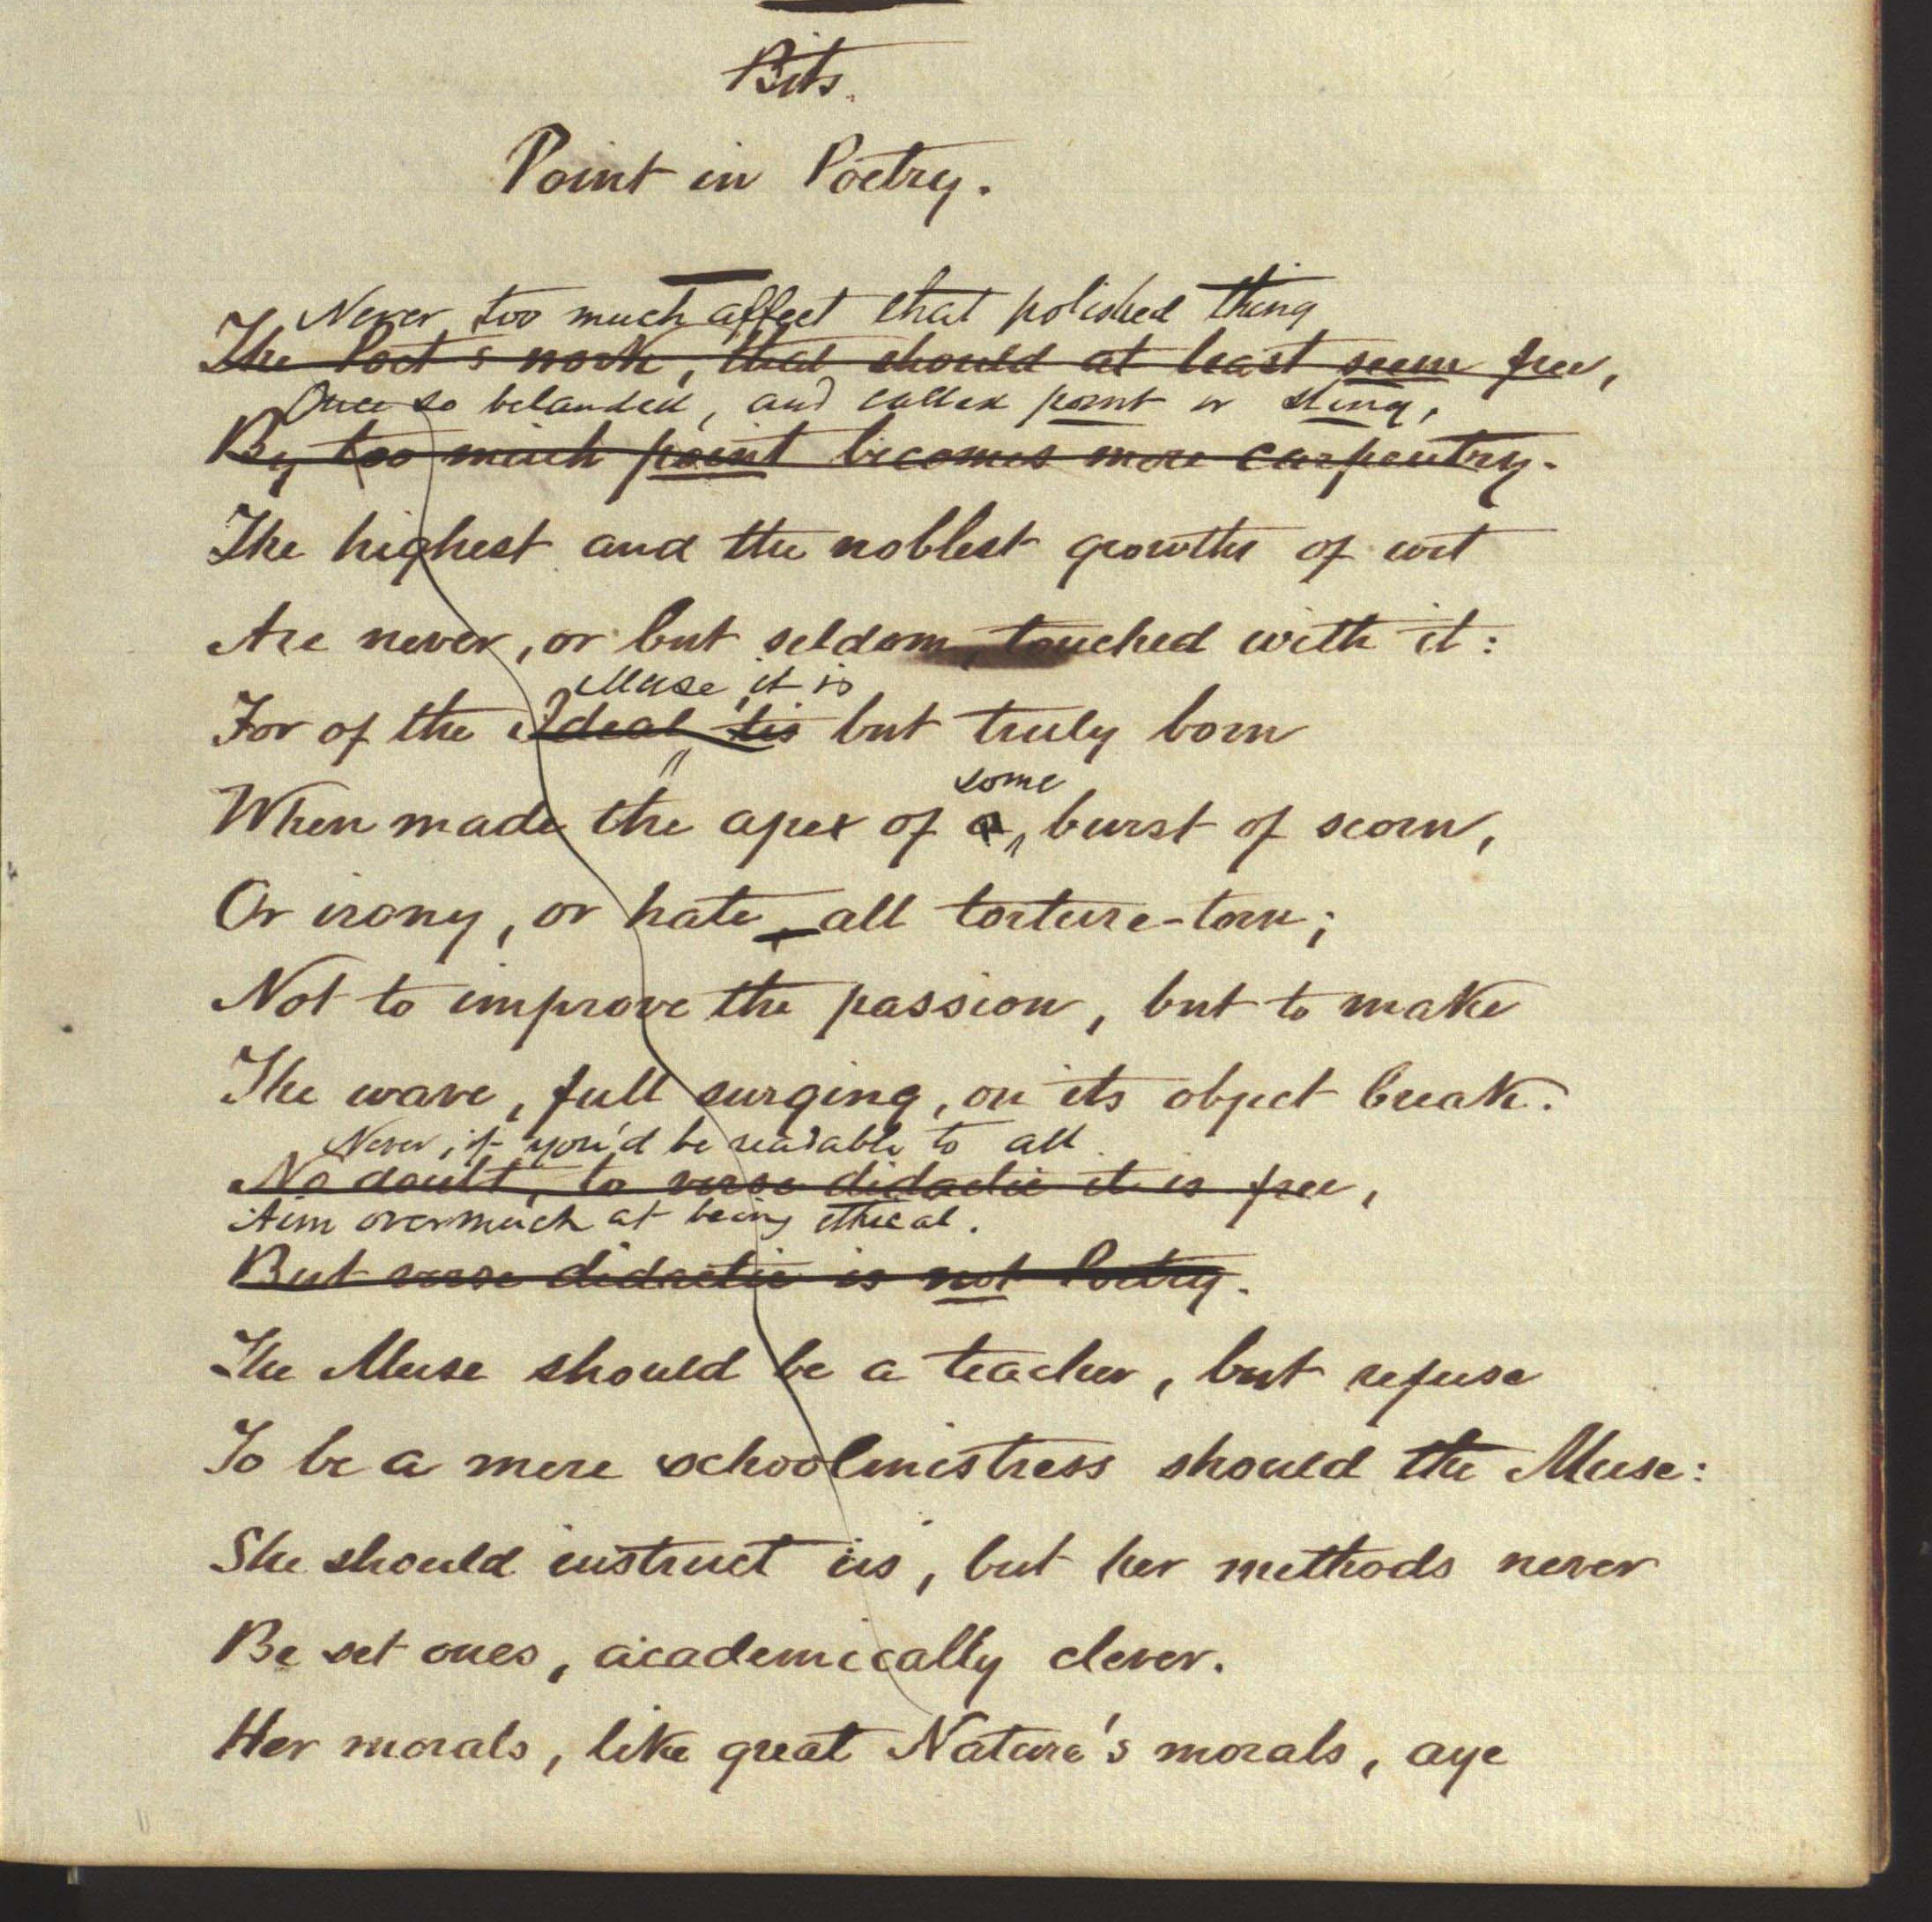 Bits.
Point in Poetry.
Never too much affect that polished thing
The Poet's work, that should at least seem free,
Once so belauded, and called point or sting,
By too much point becomes mere carpentry.
The highest and the noblest growths of wit
Are never, or but seldom, touched with it:
Muse it is
For of the Ideal 'tis but truly born
some
When made the apex of a burst of scorn,
Or irony, or hate, all torture-torn;
Not to improve the passion, but to make
The wave, full surging, on its object break.
Never, if you'd be readable to all
No doubt, to verse didactic it is free,
Aim overmuch at being ethical.
But verse didactic is not Poetry.
The Muse should be a teacher, but refuse
To be a mere schoolmistress should the Muse:
She should instruct us, but her methods never
Be set ones, academically clever.
Her morals, like great Nature's morals, aye